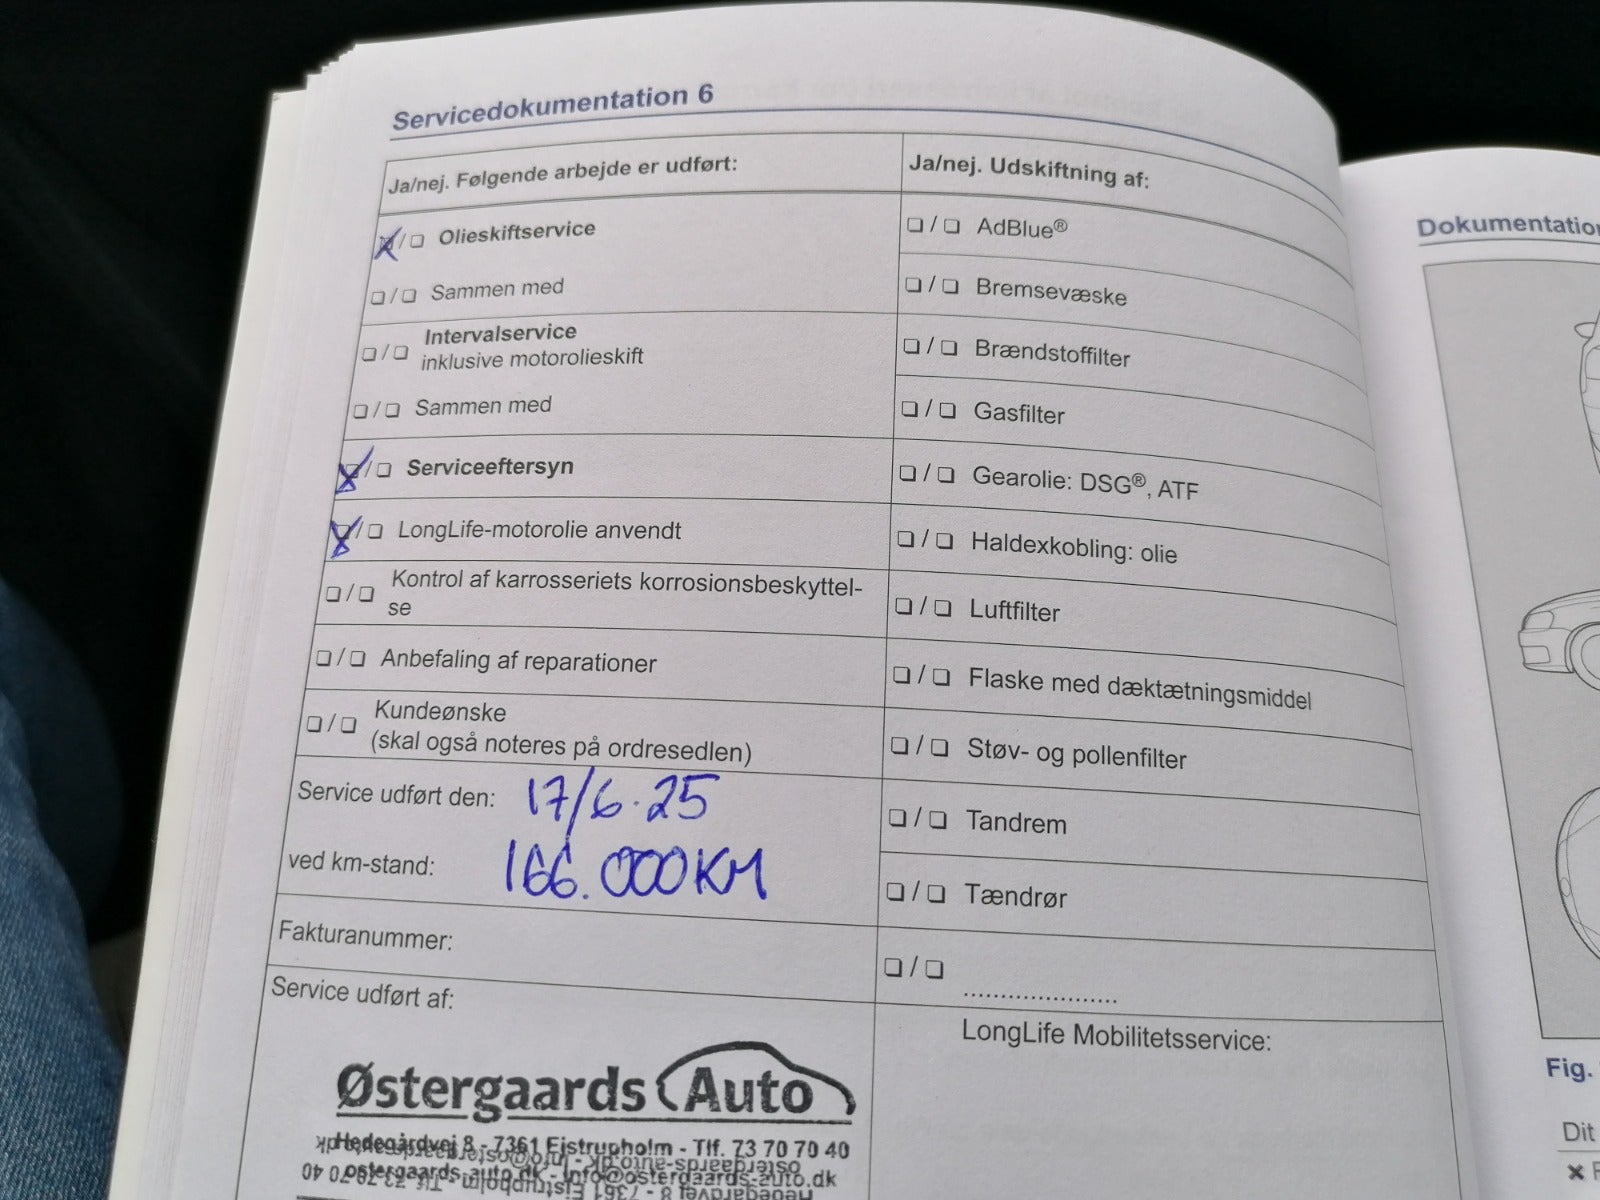 Servicedokumentation 6
Ja/nej. Følgende arbejde er udført:
❏ / ❏ Olieskiftservice
❏ / ❏ Sammen med
❏ / ❏ Intervalservice
inklusive motorolieskift
❏ / ❏ Sammen med
❏ / ❏ Serviceeftersyn
❏ / ❏ LongLife-motorolie anvendt
❏ / ❏ Kontrol af karrosseriets korrosionsbeskyttel-
se
❏ / ❏ Anbefaling af reparationer
❏ / ❏ Kundeønske
(skal også noteres på ordresedlen)
Service udført den: 17/6·25
ved km-stand: 166.000KM
Fakturanummer:
Service udført af:
Østergaards Auto
Hedegårdvej 8 - 7361 Ejstrupholm - Tlf. 73 70 70 40
ostergaards-auto.dk - info@ostergaards-auto.dk
Ja/nej. Udskiftning af:
❏ / ❏ AdBlue®
❏ / ❏ Bremsevæske
❏ / ❏ Brændstoffilter
❏ / ❏ Gasfilter
❏ / ❏ Gearolie: DSG®, ATF
❏ / ❏ Haldexkobling: olie
❏ / ❏ Luftfilter
❏ / ❏ Flaske med dæktætningsmiddel
❏ / ❏ Støv- og pollenfilter
❏ / ❏ Tandrem
❏ / ❏ Tændrør
❏ / ❏ .....................
LongLife Mobilitetsservice:
Fig.
Dit